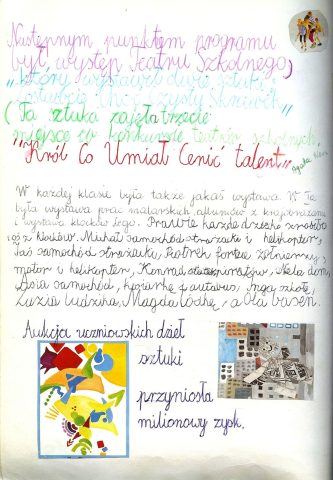 Następnym punktem programu
był występ Teatru Szkolnego,
który wystawił dwie sztuki
(Ta sztuka zajęła trzecie
miejsce co konkursie teatrów szkolnych,
"Król Co Umiał Cenić talent"
W każdej klasie była także jakaś wystawa. W Ia
była wystawa prac malarskich, albumów z
i wystawa klocków lego. Prawie każde dziecko zrobiło
coś z klocków. Michał samochód strażacki i helikopter,
Jaś samochód strażacki, Piotrek fortecę żołnierzy,
motor i helikopter, Konrad Ala dom,
Asia samochód, ciężarówkę autobus, Inga szkołę,
Zuzia ludzika, Magda łódkę, a Ola basen.
Aukcja uczniowskich dzieł
sztuki
przyniosła
milionowy zysk.